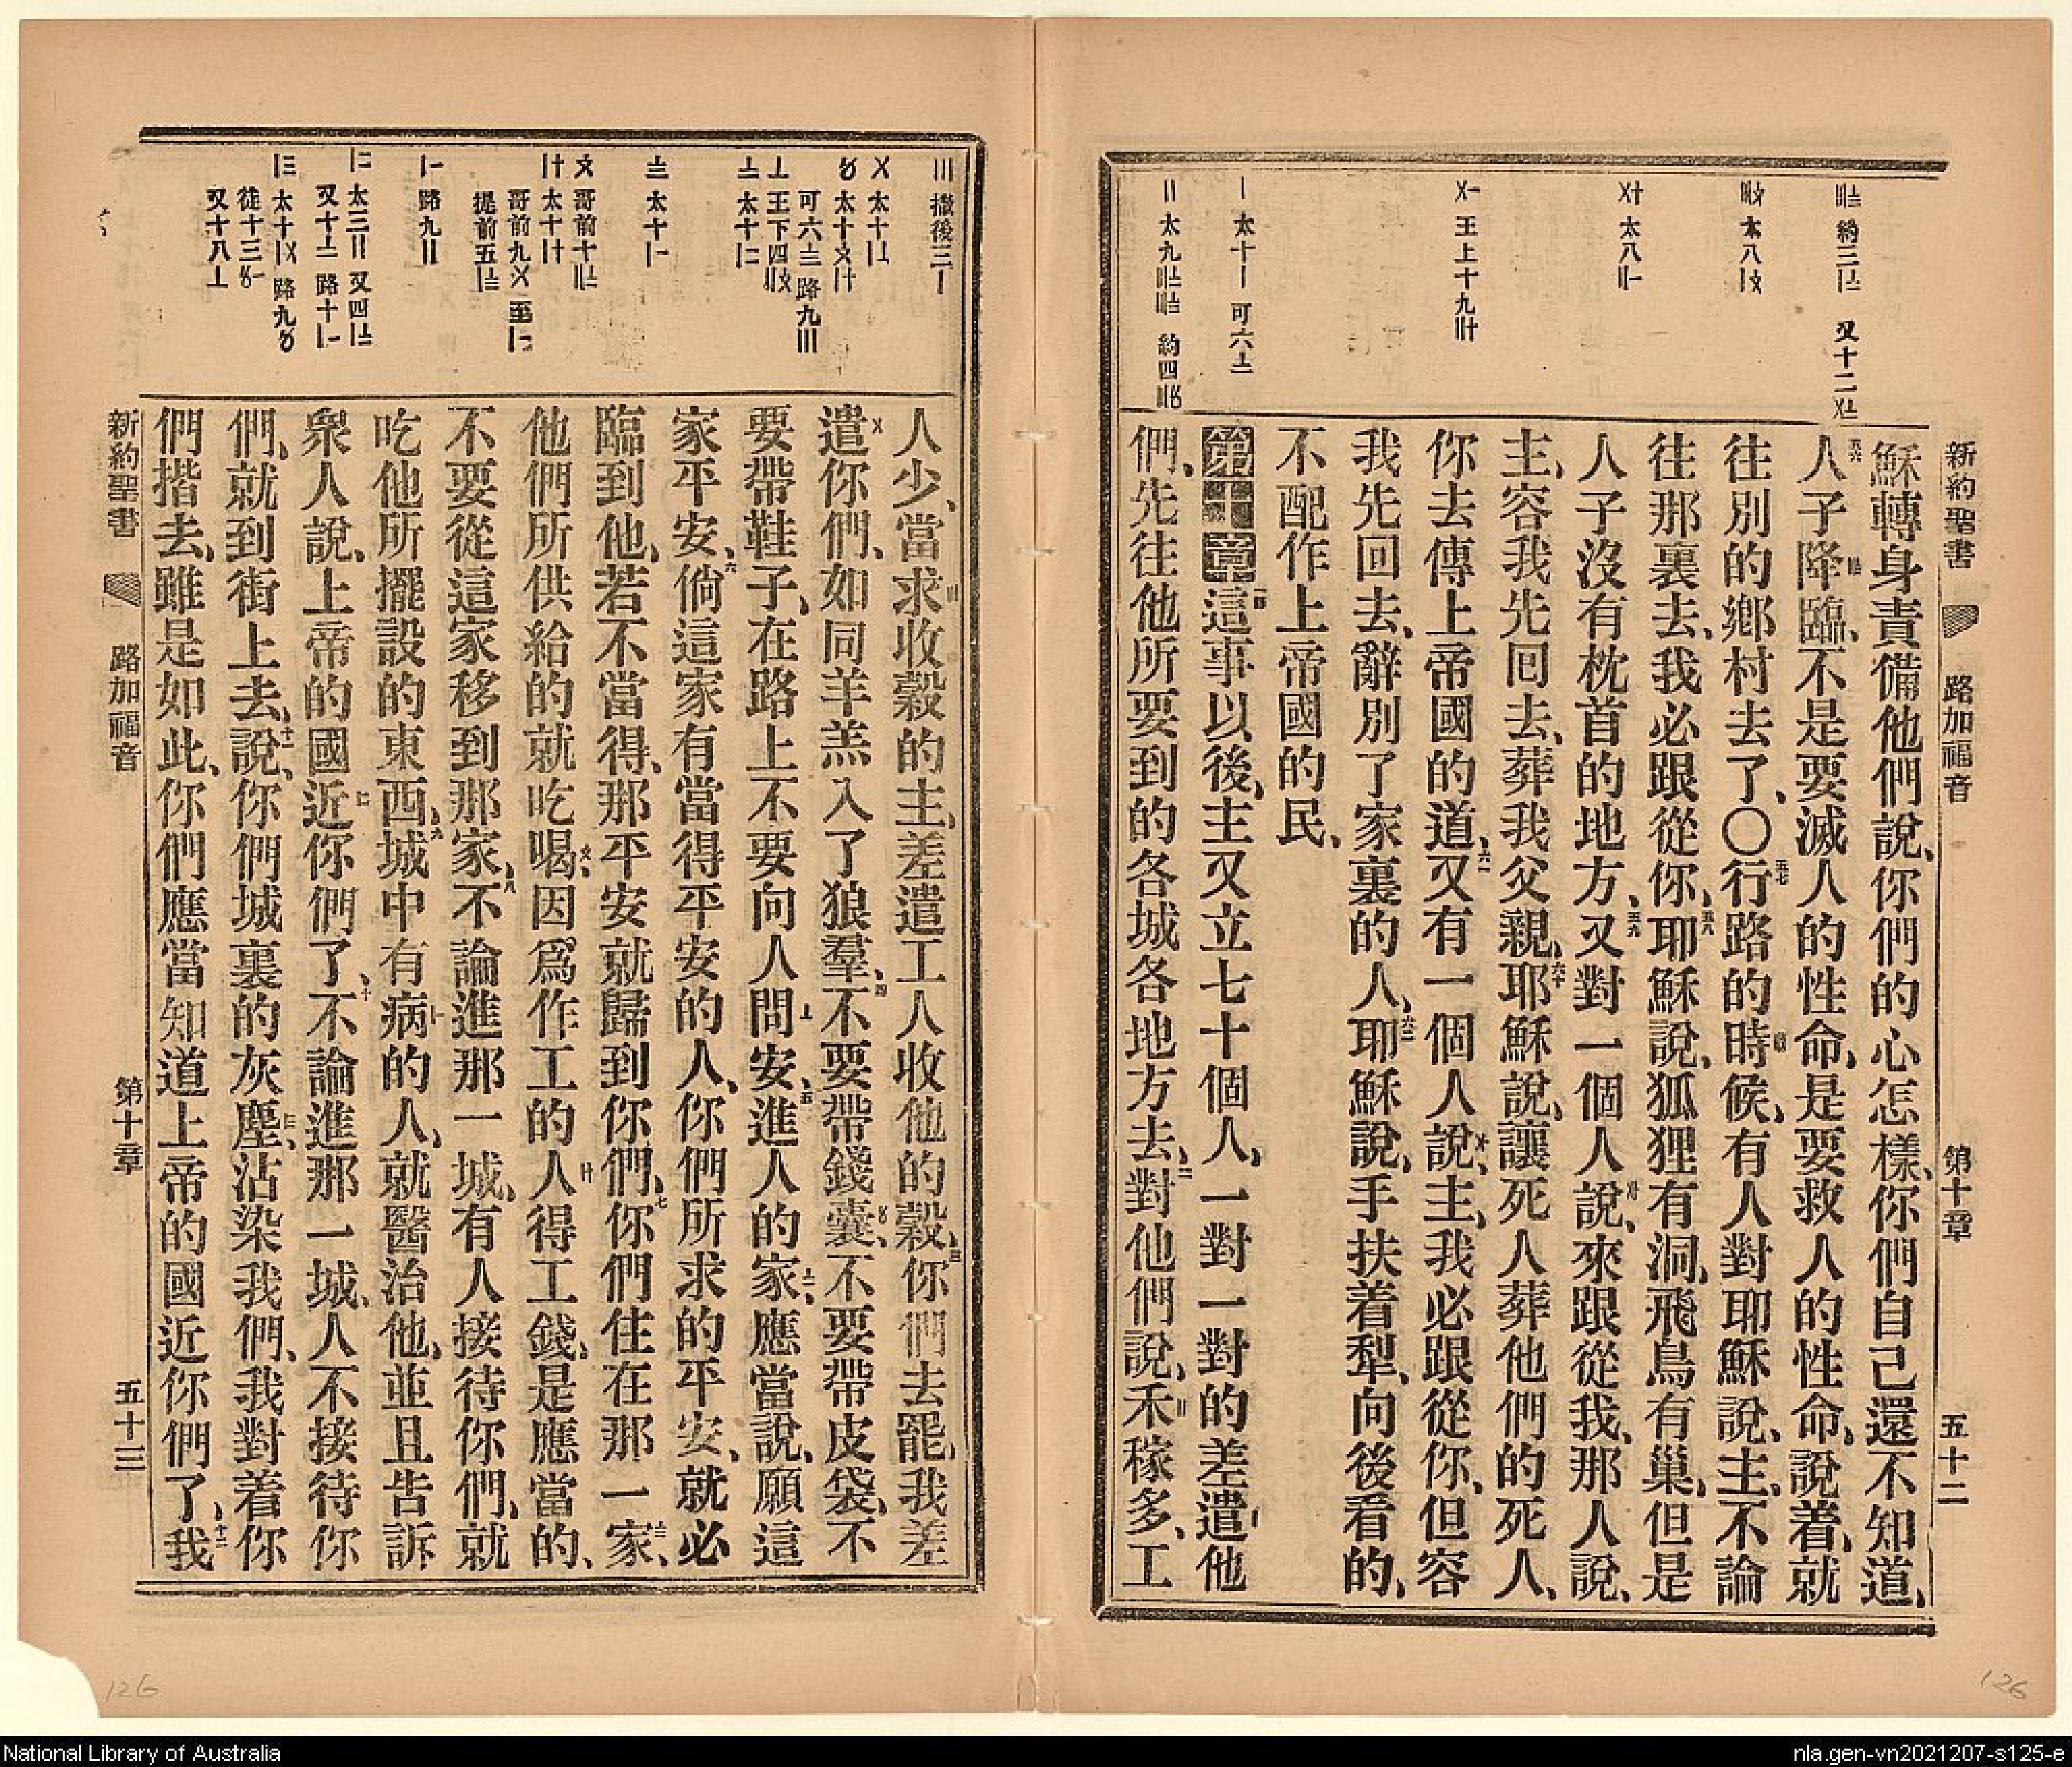 新約聖書 路加福音 第十章 五十二
穌轉身責備他們說、你們的心怎樣、你們自己還不知道、
人子降臨、不是要滅人的性命、是要救人的性命、說着、就
往別的鄉村去了、〇行路的時候、有人對耶穌說、主、不論
往那裏去、我必跟從你、耶穌說、狐狸有洞、飛鳥有巢、但是
人子沒有枕首的地方、又對一個人說、來跟從我、那人說、
主、容我先回去、葬我父親、耶穌說、讓死人葬他們的死人、
你去傳上帝國的道、又有一個人說、主、我必跟從你、但容
我先回去、辭別了家裏的人、耶穌說、手扶着犁、向後看的、
不配作上帝國的民、
第十章 這事以後、主又立七十個人、一對一對的差遣他
們、先往他所要到的各城各地方去、對他們說、禾稼多、工
人少、當求收穀的主、差遣工人收他的穀、你們去罷、我差
遣你們、如同羊羔入了狼羣、不要帶錢囊、不要帶皮袋、不
要帶鞋子、在路上不要向人問安、進人的家、應當說、願這
家平安、倘這家有當得平安的人、你們所求的平安、就必
臨到他、若不當得、那平安就歸到你們、你們住在那一家、
他們所供給的就吃喝、因爲作工的人得工錢、是應當的、
不要從這家移到那家、不論進那一城、有人接待你們、就
吃他所擺設的東西、城中有病的人、就醫治他、並且告訴
衆人說、上帝的國近你們了、不論進那一城、人不接待你
們、就到街上去、說、你們城裏的灰塵、沾染我們、我對着你
們揩去、雖是如此、你們應當知道上帝的國近你們了、我
新約聖書 路加福音 第十章 五十三
126
126
National Library of Australia
nla.gen-vn2021207-s125-e